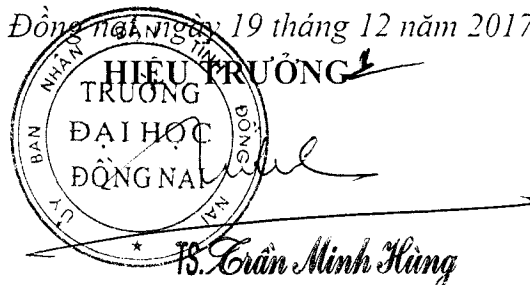 Đồng nai, ngày 19 tháng 12 năm 2017
HIỆU TRƯỞNG
ỦY BAN NHÂN DÂN TỈNH ĐỒNG NAI
TRƯỜNG
ĐẠI HỌC
ĐỒNG NAI
TS. Trần Minh Hùng